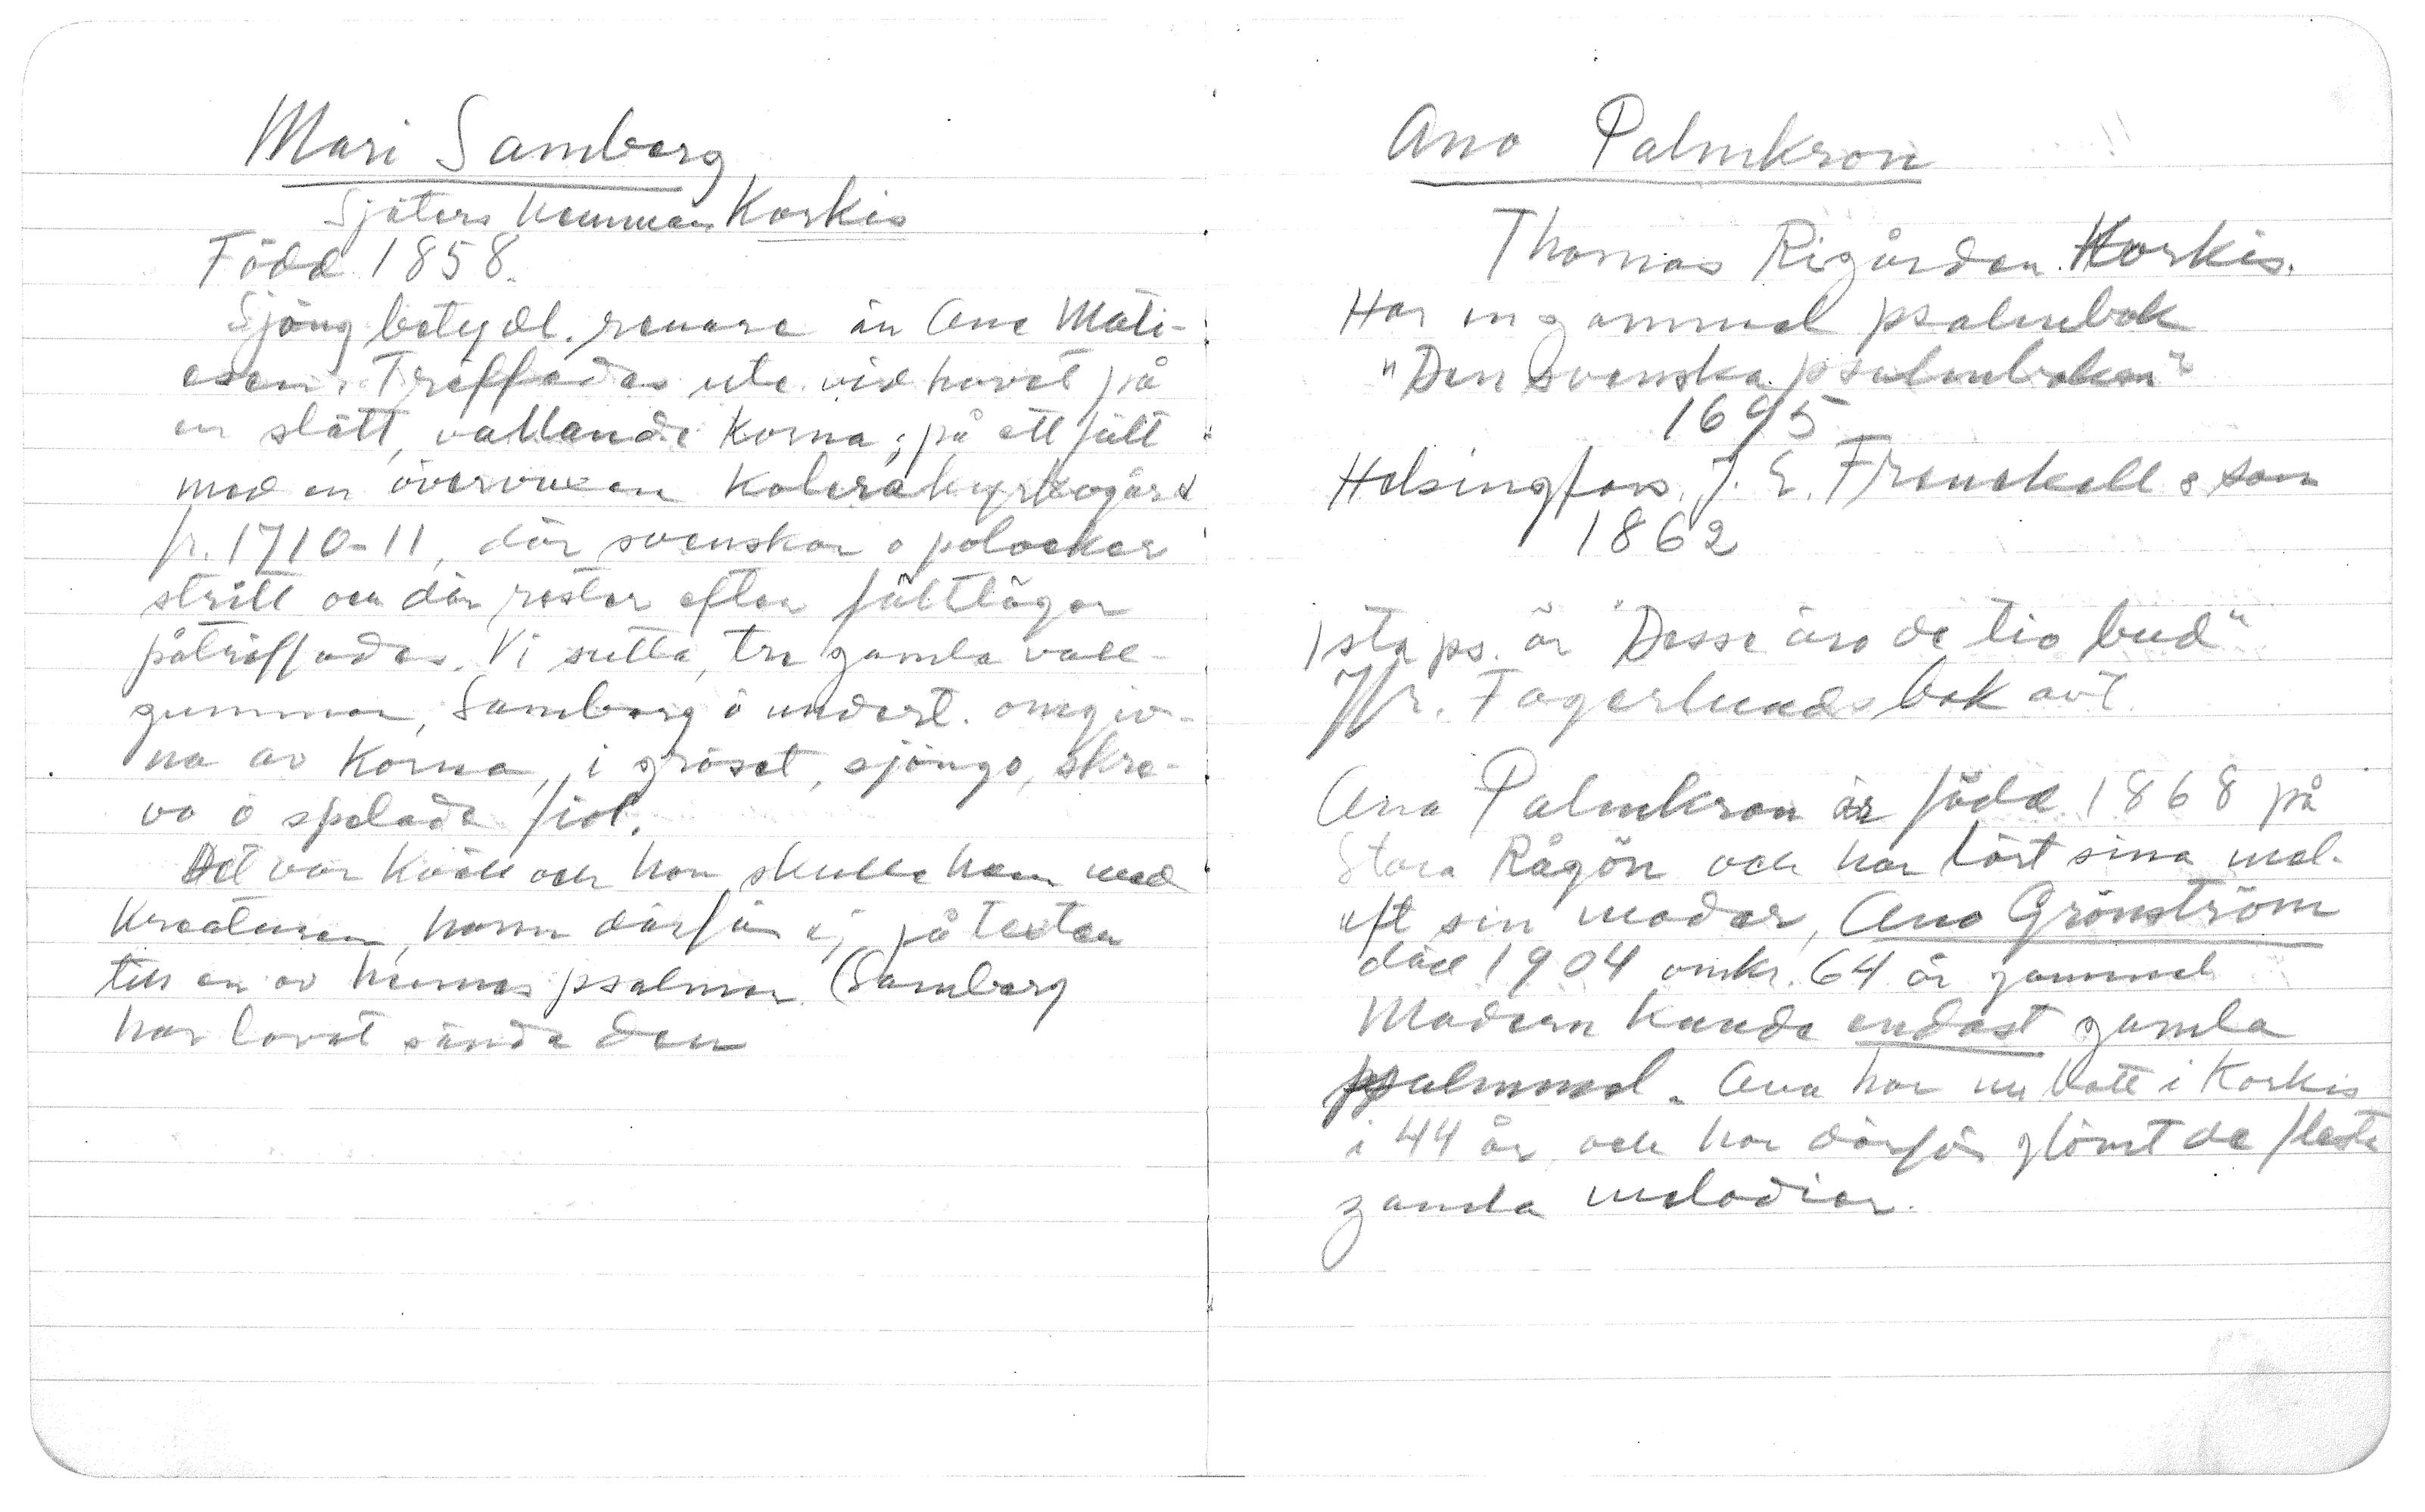 Mari Samberg
Sjöters hemman Korkis
Född 1858.
Sjöng betydl. renare än Ana Mati-
esen. Träffades ute vid havet på
en slätt, vallande korna, på ett fält
med en övervuxen kolerakyrkogård
fr. 1710-11, där svenskar o polacker
stritt och där rester efter fältläger
påträffades. Vi sutto, tre gamla vall-
gummor, Samberg o undert. omgiv-
na av korna, i gräset, sjöngo, skre-
vo o spelade fiol.
Det var kväll och hon skulle hem med
kreaturen, hann därför ej på texten
till en av hennes psalmer. (Samberg
har lovat sända den
Ana Palmkron
Thomas Rigården. Korkis.
Har en gammal psalmbok
"Den svenska psalmboken"
1695
Helsingfors. J. C. Frenckell & son
1862
1sta ps. är "Desse äro de tio bud"
Jfr. Fagerlunds bok avt.
Ana Palmkron är född 1868 på
Stora Rågön och har lärt sina mel.
eft sin moder, Ana Grönström
död 1904 omkr. 64 år gammal
Modern kunde endast gamla
psalmmel. Ana har nu bott i Korkis
i 44 år och har därför glömt de flesta
gamla melodier.